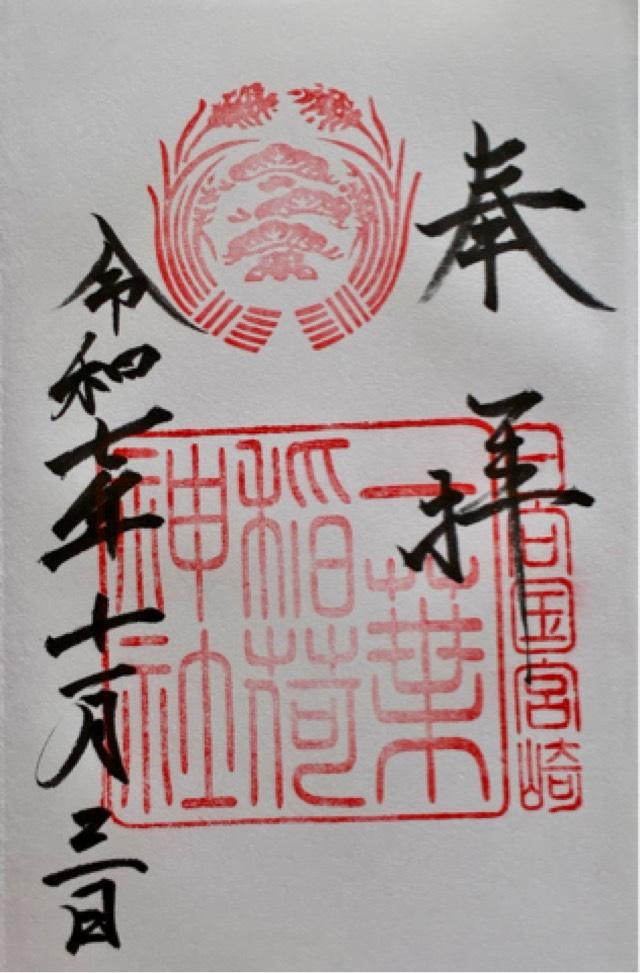 奉拝
日向国宮崎
一葉
稲荷
神社
令和七年十一月三日